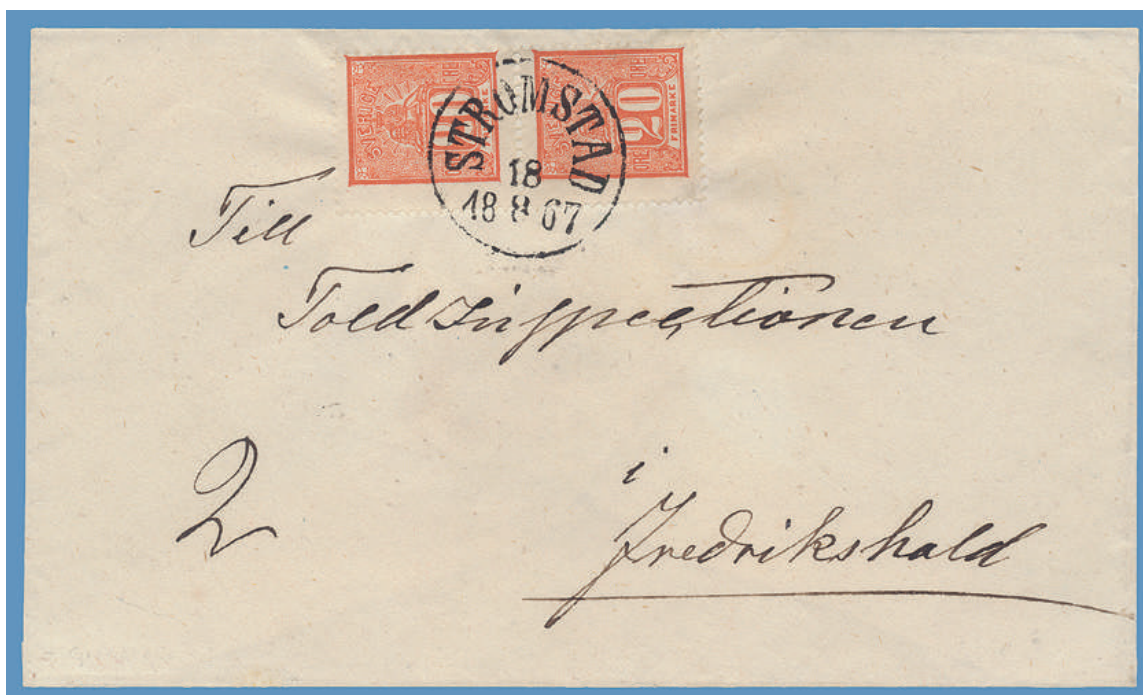 SVERIGE
20
ÖRE
SVERIGE
20
ÖRE
ÖRE
FRIMÄRKE
STRÖMSTAD
18
18 8 67
Till
ToldInspectionen
2
i
Fredrikshald